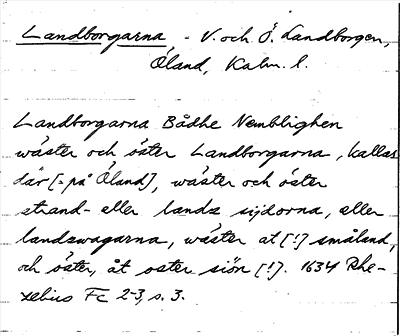 Landborgarna - V. och Ö. Landborgen,
Öland, Kalm. l.
Landborgarna Bådhe Nemblighen
wäster och öster Landborgarna, kallas
där [= på Öland], wäster och öster
strand- eller landz sijdorna, eller
landzwagarna, wäster at [!] småland,
och öster, åt oster siön [!]. 1634 Rhe-
zelius Fc 2-3, s. 3.